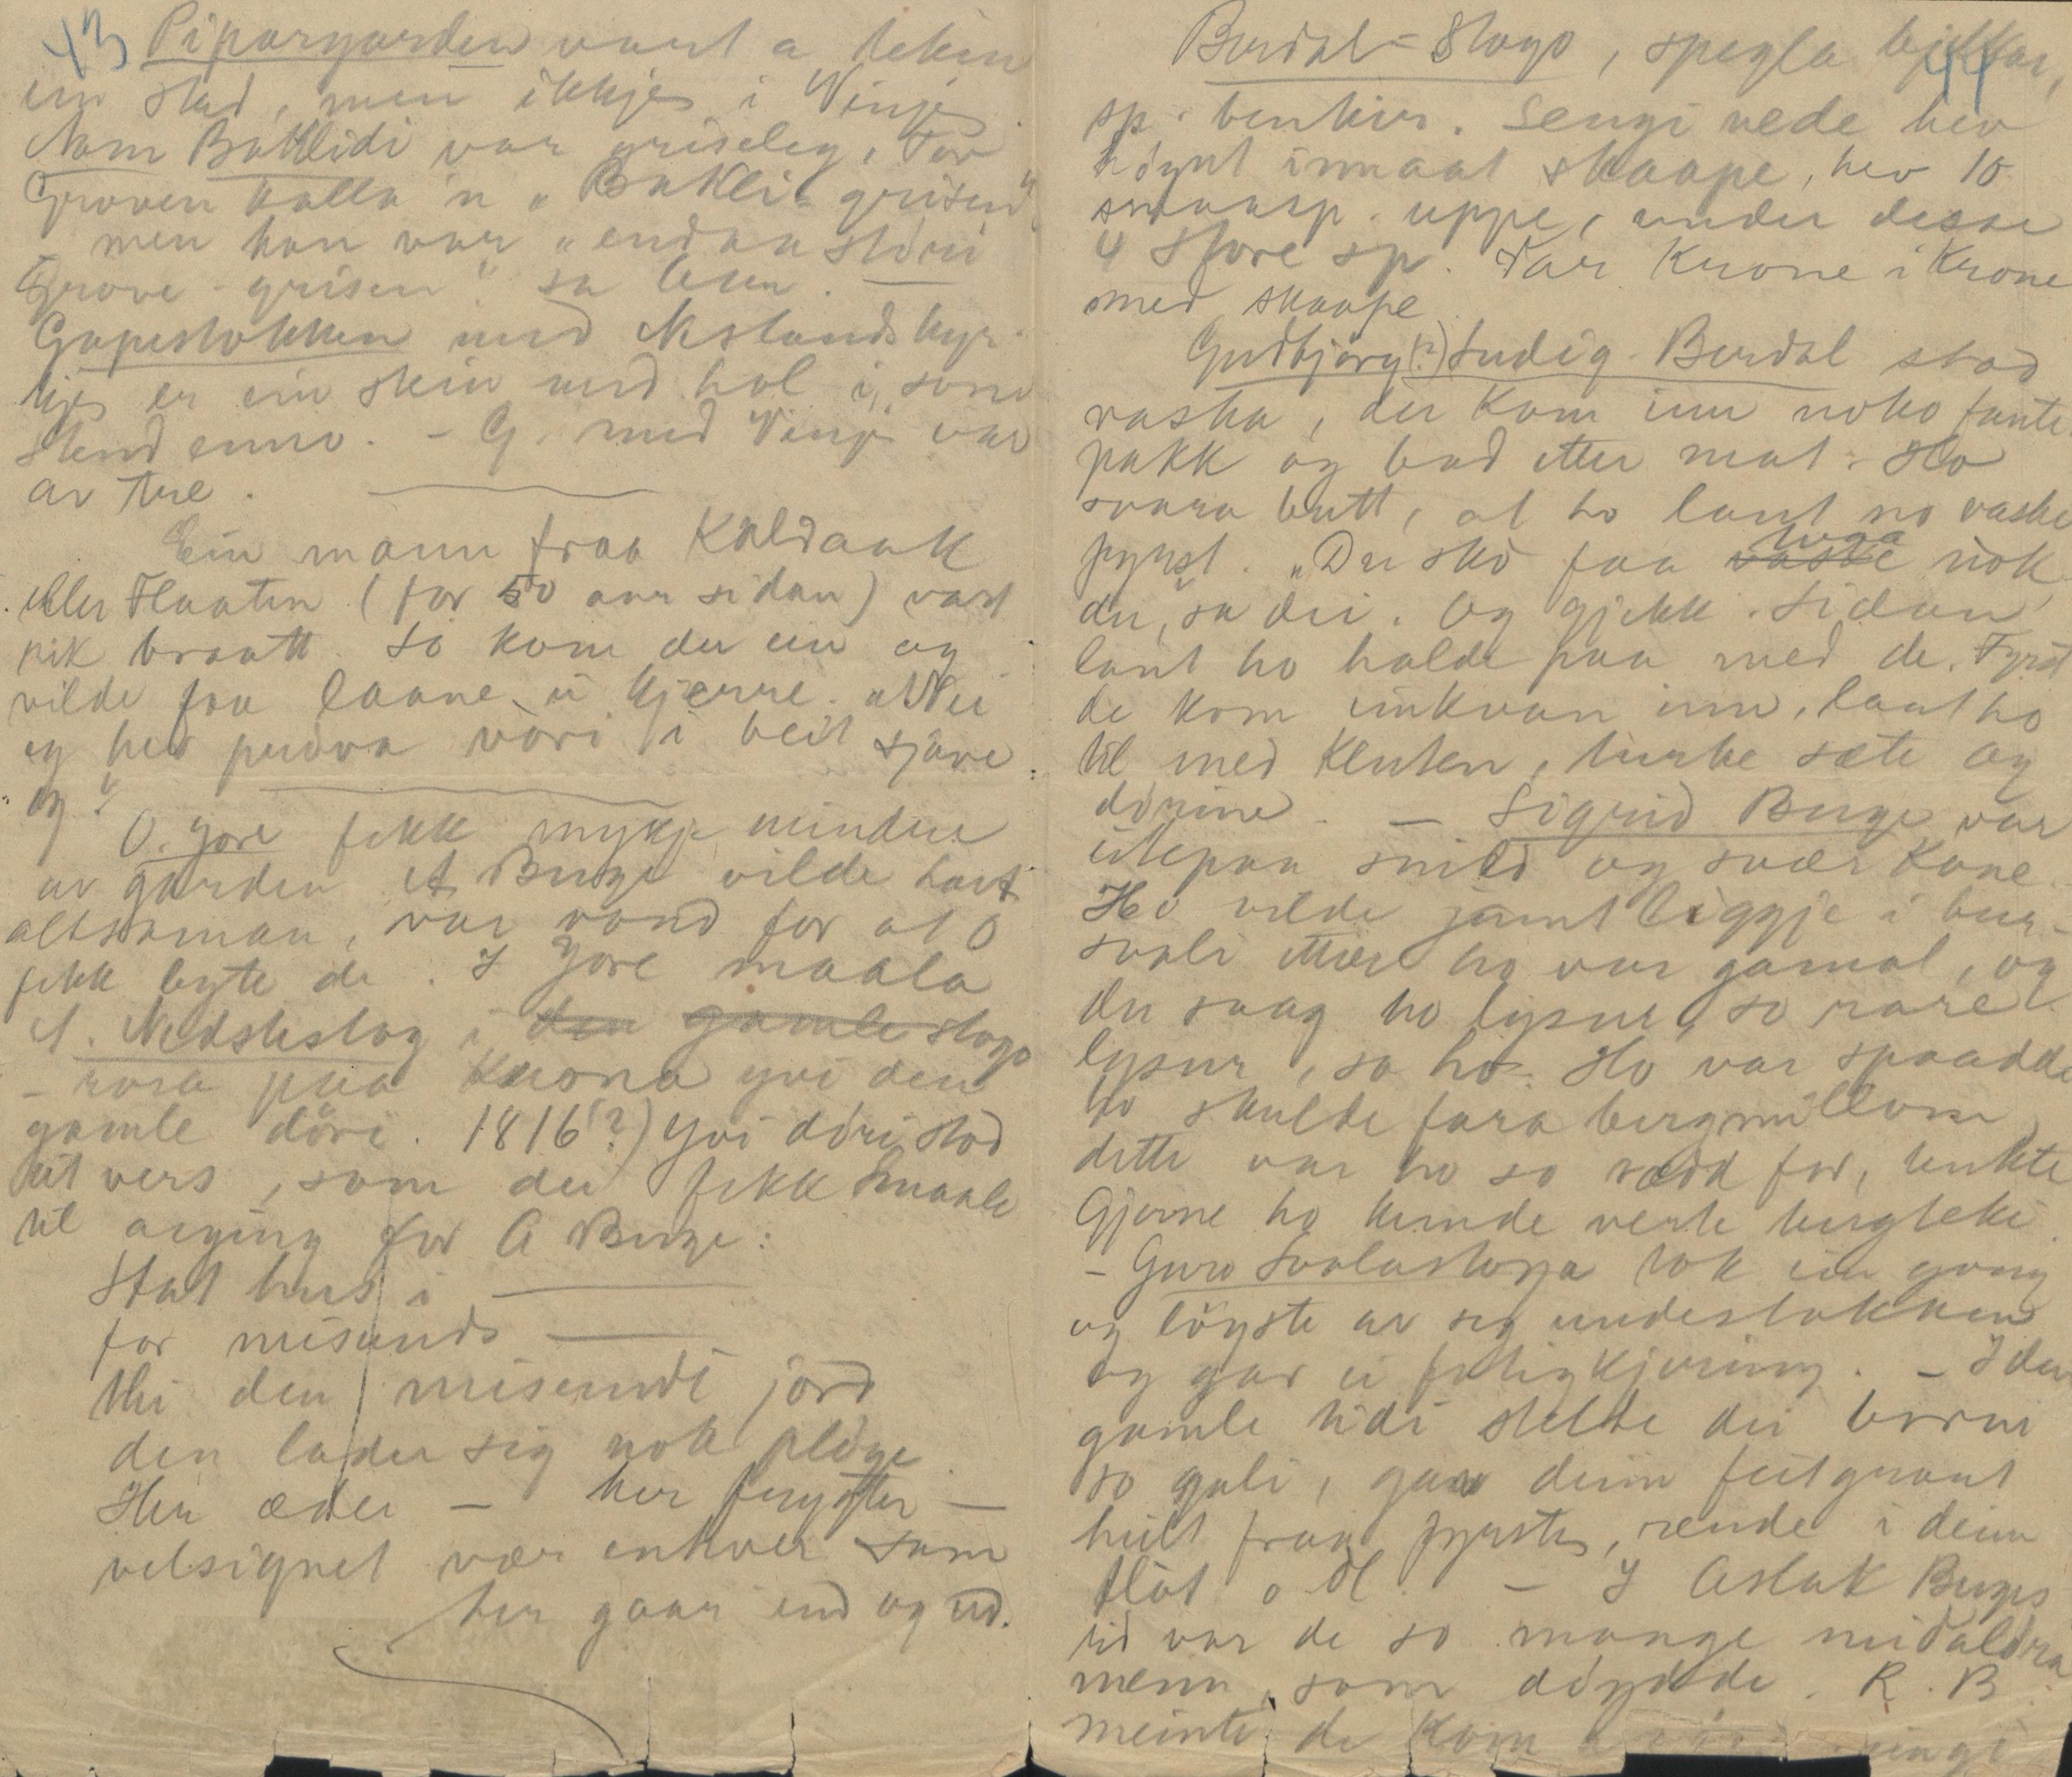 43 Pipargarden vart a tekin
ein stad, men ikkje i Vinje.
Nam Bakklidi var griseleg, Tor
Groven kalla 'n „Bakkli-grisen"
men han var „endaa større
Grove-grisen", sa
Gapestokken med Neslands kyr-
kje er ein stein med hol i, som
stend enno. - G. med Vinje var
av tre.
Ein mann fraa Kaldaak
eller Flaaten (for 50 aar sidan) vart
rik braatt. So kom der ein og
vilde faa laane ei kjerre. „Nei
eg hev vori i beit sjøve
og"
O. Jore fekk mykje mindre
av garden. A Berge vilde havt
altsaman, var vond for at O
fekk byte de. I Jore maala
A. Nedstestog i den gamle stogo
- rosa paa Krona yvi den
gamle døri. 1816 (?) Yvi døri stod
eit vers, som dei fekk maale
til arging for A Berge:
Stat hus i —
for misunds —
thi den misundt jord
den lader sig nok pløye
Her æder — her —
velsignet vær enhver som
her gaar ind og ud.
Burdal-Stogo, spegla bjelkar, 44
sp. benkir. Sengi vede hev
høynt innaat skaape, hev 10
smaasp. uppe, under desse
4 store sp. Tar Krone i Krone
med skaape.
Gudbjørg (?) Ludig-Burdal stod
vaska, der kom inn noko fante
pakk og bad etter mat. Ho
svara butt, at ho laut no vaske
fyrst. „Du sko faa vaske nok
du", sa dei. Og gjekk. Sidan
laut ho halde paa med de. Fyrst
de kom einkvan inn, laut ho
til med kluten, turke sæte og
dørine. — Sigrid Berge var
utepaa snild og svær kone.
Ho vilde jamt liggje i bur-
svali etter ho var gamal, og
der saag ho lysur, „so rare
lysur", sa ho. Ho var spaadd
ho skulde fara bergmillom
dette var ho so rædd for, tenkte
Gjerne ho kunde verte bergteki
- Guro Svalastoga tok ein gong
og løyste av seg undestakken
og gav ei fatigkjering. - I den
gamle tidi stelte dei borni
so gali, gav deim feitgraut
heilt fraa fyrste, rende i deim
fløt o. sl. — I Aslak Berges
tid var de so mange midaldra
menn, som døydde. R. B.
meinte de kom